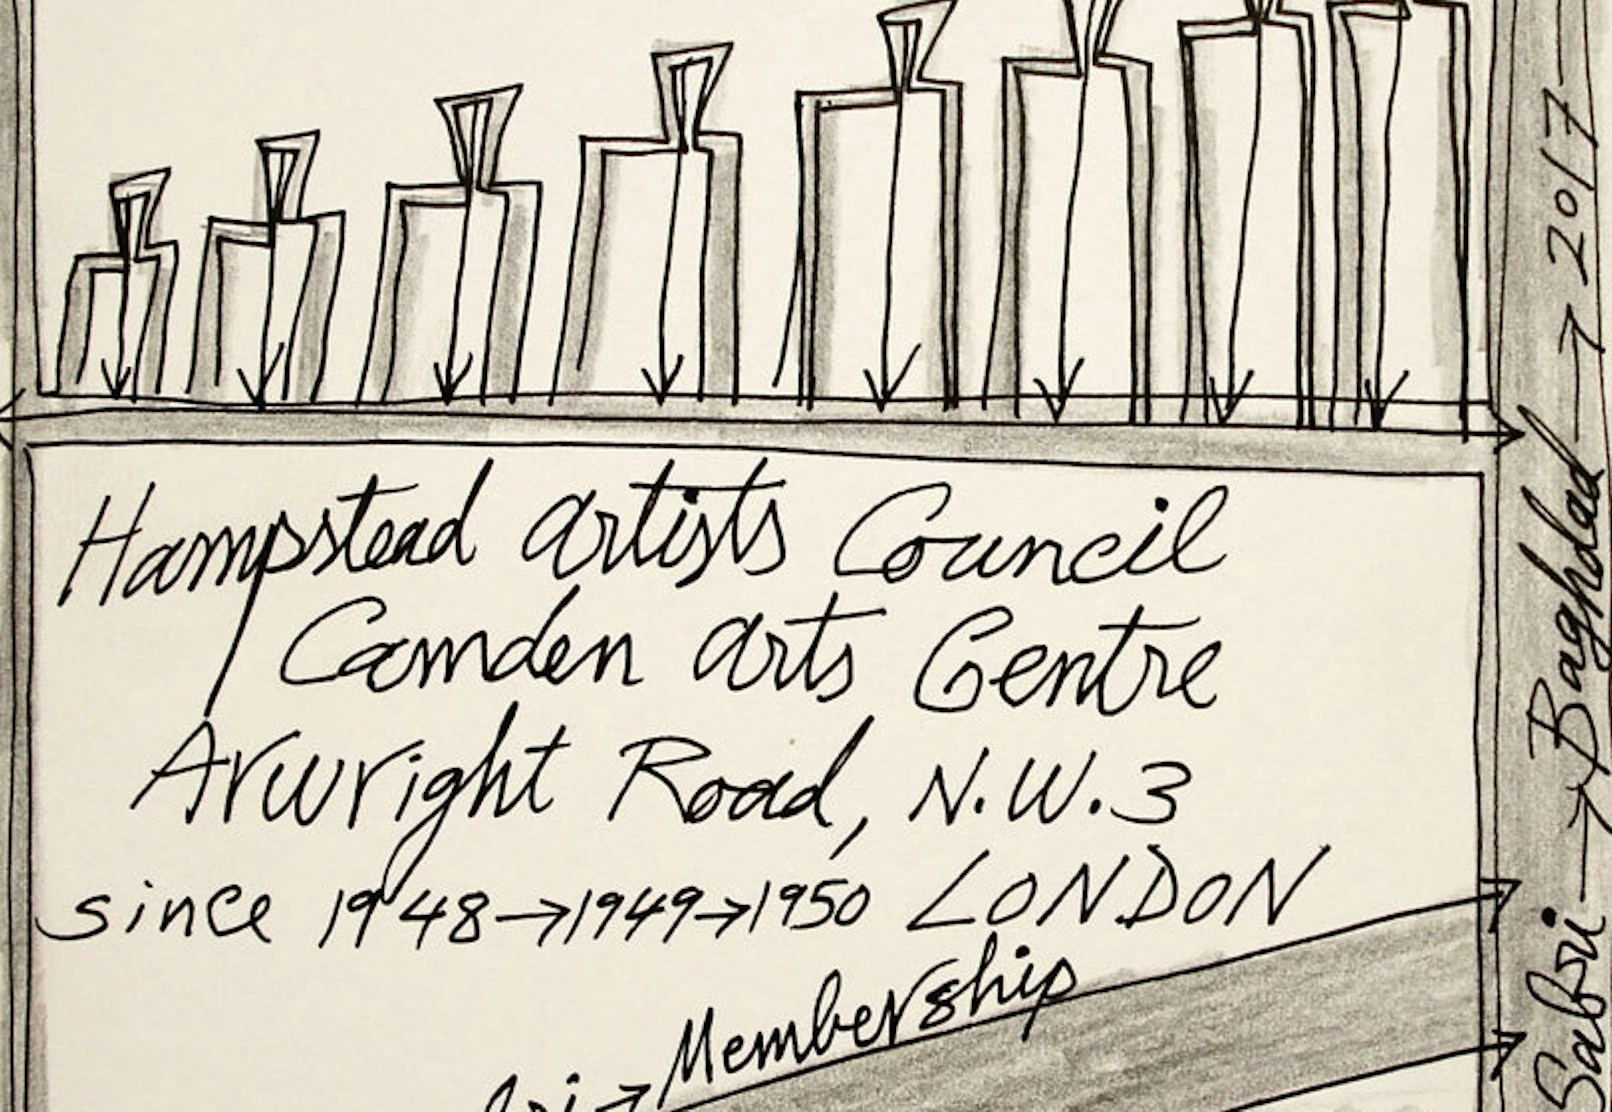 Hampstead artists Council
Camden arts Centre
Arwright Road, N.W.3
since 1948→1949→1950 LONDON
Membership
Sabri→Baghdad→2017